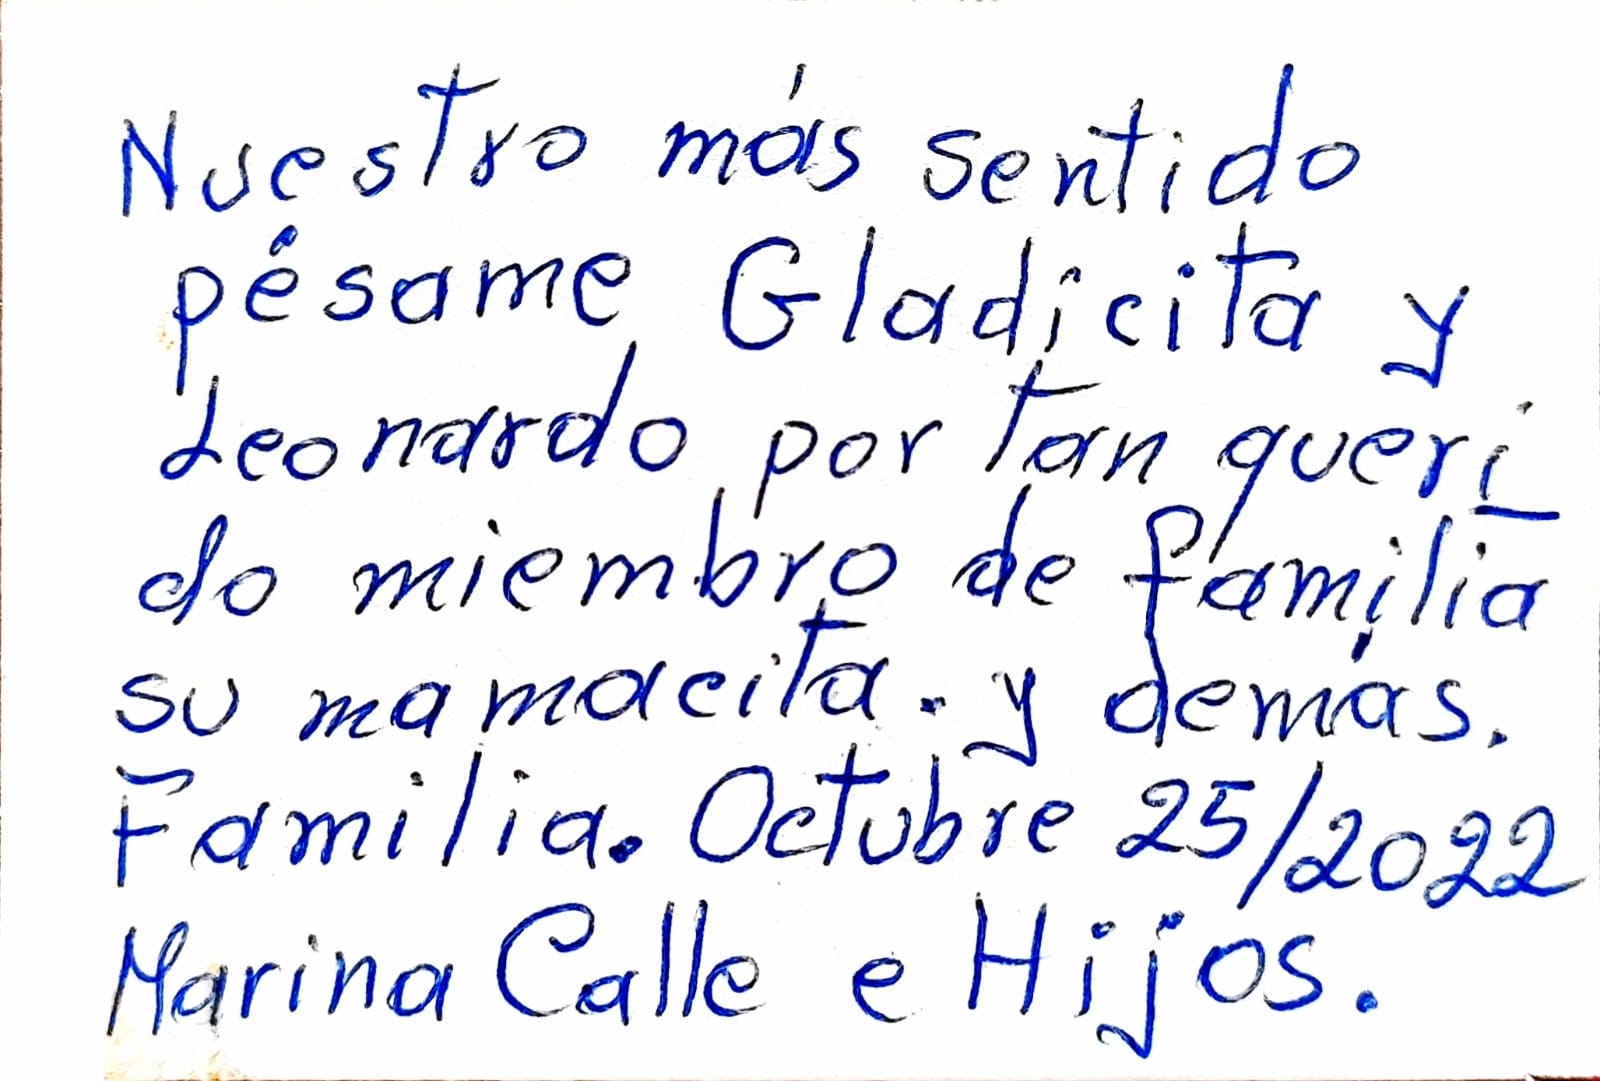 Nuestro más sentido
pésame Gladicita y
Leonardo por tan queri_
do miembro de familia
su mamacita. y demás.
Familia. Octubre 25/2022
Marina Calle e Hijos.